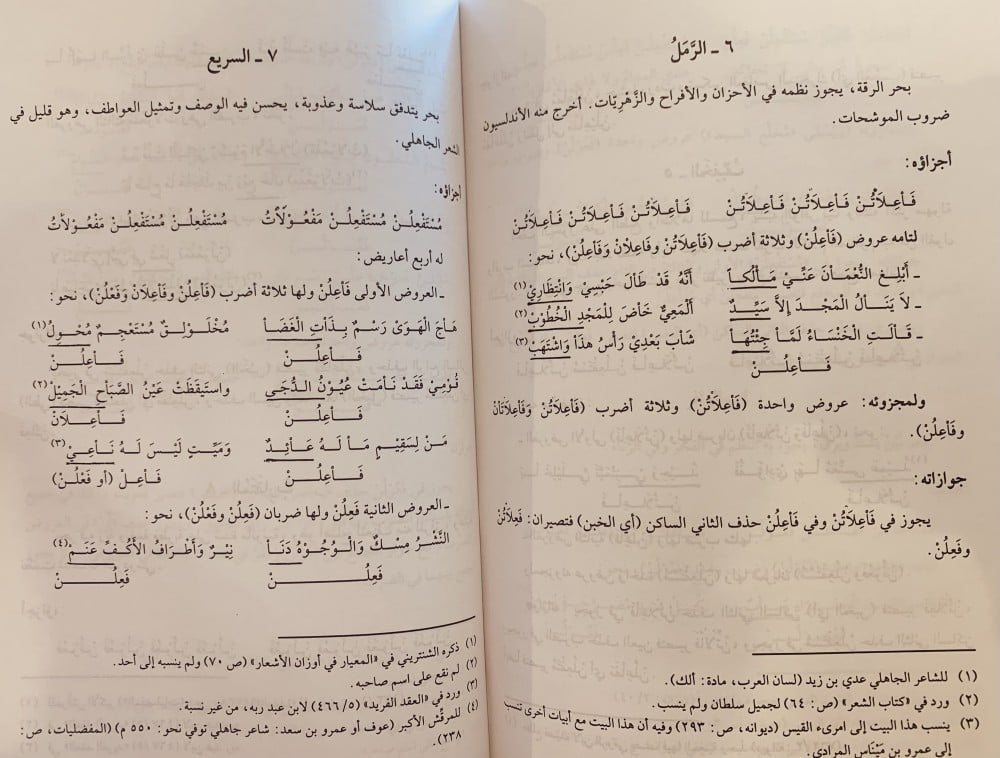 ٦ ـ الرَّمَلُ
بحر الرقة، يجوز نظمه في الأحزان والأفراح والزَّهْرِيّات. أخرج منه الأندلسيون
ضروب الموشحات.
أجزاؤه:
فَاْعِلَاْتُنْ فَاْعِلَاْتُنْ فَاْعِلَاْتُنْ فَاْعِلَاْتُنْ فَاْعِلَاْتُنْ فَاْعِلَاْتُنْ
لتامه عروض (فَاْعِلُنْ) وثلاثة أضرب (فَاْعِلَاْتُنْ وفَاْعِلَاْنْ وَفَاْعِلُنْ)، نحو:
ـ أَبْلِغِ النُّعْمَانَ عَنِّيْ مَأْلُكاً أَنَّهُ قَدْ طَالَ حَبْسِيْ وَانْتِظَارِيْ(١)
ـ لاَ يَنَـالُ الْمَجْـدَ إِلاَّ سَيِّـدٌ أَلْمَعِيٌّ خَاْضَ لِلْمَجْدِ الْخُطُوْبْ(٢)
ـ قَـالَتِ الْخَنْسَـاءُ لَمَّـا جِئْتُهَـا شَاْبَ بَعْدِيْ رَأْسُ هَذَاْ وَاشْتَهَبْ(٣)
فَـاْعِلُـنْ
ولمجزوئه: عروض واحدة (فَاْعِلَاْتُنْ) وثلاثة أضرب (فَاْعِلَاْتُنْ وَفَاْعِلَاْتَاْنْ
وفَاْعِلُنْ).
جوازاته:
يجوز في فَاْعِلَاْتُنْ وفي فَاْعِلُنْ حذف الثاني الساكن (أي الخبن) فتصيران: فَعِلَاْتُنْ
وفَعِلُنْ.
(١) للشاعر الجاهلي عدي بن زيد (لسان العرب، مادة: ألك).
(٢) ورد في «كتاب الشعر» (ص: ٦٤) لجميل سلطان ولم ينسب.
(٣) ينسب هذا البيت إلى امرىء القيس (ديوانه، ص: ٢٩٣) وفيه أن هذا البيت مع أبيات أخرى تنسب
إلى عمرو بن مَيْنَاس المرادي.
٧ ـ السريع
بحر يتدفق سلاسة وعذوبة، يحسن فيه الوصف وتمثيل العواطف، وهو قليل في
الشعر الجاهلي.
أجزاؤه:
مُسْتَفْعِلُـنْ مُسْتَفْعِلُـنْ مَفْعُوْلَاْتُ مُسْتَفْعِلُـنْ مُسْتَفْعِلُـنْ مَفْعُوْلَاْتُ
له أربع أعاريض:
ـ العروض الأولى فَاْعِلُنْ ولها ثلاثة أضرب (فَاْعِلُنْ وفَاْعِلَاْنْ وَفَعْلُنْ)، نحو:
هَاْجَ الْهَوَىْ رَسْمٌ بِذَاْتِ الْغَضَا مُخْلَوْلِـقٌ مُسْتَعْجِـمٌ مُحْوِلُ(١)
فَــاْعِلُــنْ فَــاْعِلُــنْ
نُوْمِيْ فَقَدْ نَاْمَتْ عُيُوْنُ الدُّجَى واستَيقَظَتْ عَيْنُ الصَّبَاْحِ الْجَمِيْلْ(٢)
فَــاْعِلُــنْ فَــاْعِلَاْنْ
مَنْ لِسَقِيْمٍ مَـاْ لَـهُ عَـاْئِـدٌ وَمَيِّتٍ لَيْسَ لَـهُ نَـاْعِـيْ(٣)
فَــاْعِلُــنْ فَاْعِلْ (أو فَعْلُنْ)
ـ العروض الثانية فَعِلُنْ ولها ضربان (فَعِلُنْ وفَعْلُنْ)، نحو:
النَّشْرُ مِسْكٌ وَالْـوُجُـوْهُ دَنَـاْ نِيْرٌ وَأَطْرَافُ الأَكُـفِّ عَنَـمْ(٤)
فَعِلُــنْ فَعِلُــنْ
(١) ذكره الشنتريني في «المعيار في أوزان الأشعار» (ص ٧٠) ولم ينسبه إلى أحد.
(٢) لم نقع على اسم صاحبه.
(٣) ورد في «العقد الفريد» (٥/ ٤٦٦) لابن عبد ربه، من غير نسبة.
(٤) للمرقّش الأكبر (عوف أو عمرو بن سعد: شاعر جاهلي توفي نحو: ٥٥٠ م) (المفضليات، ص:
٢٣٨).